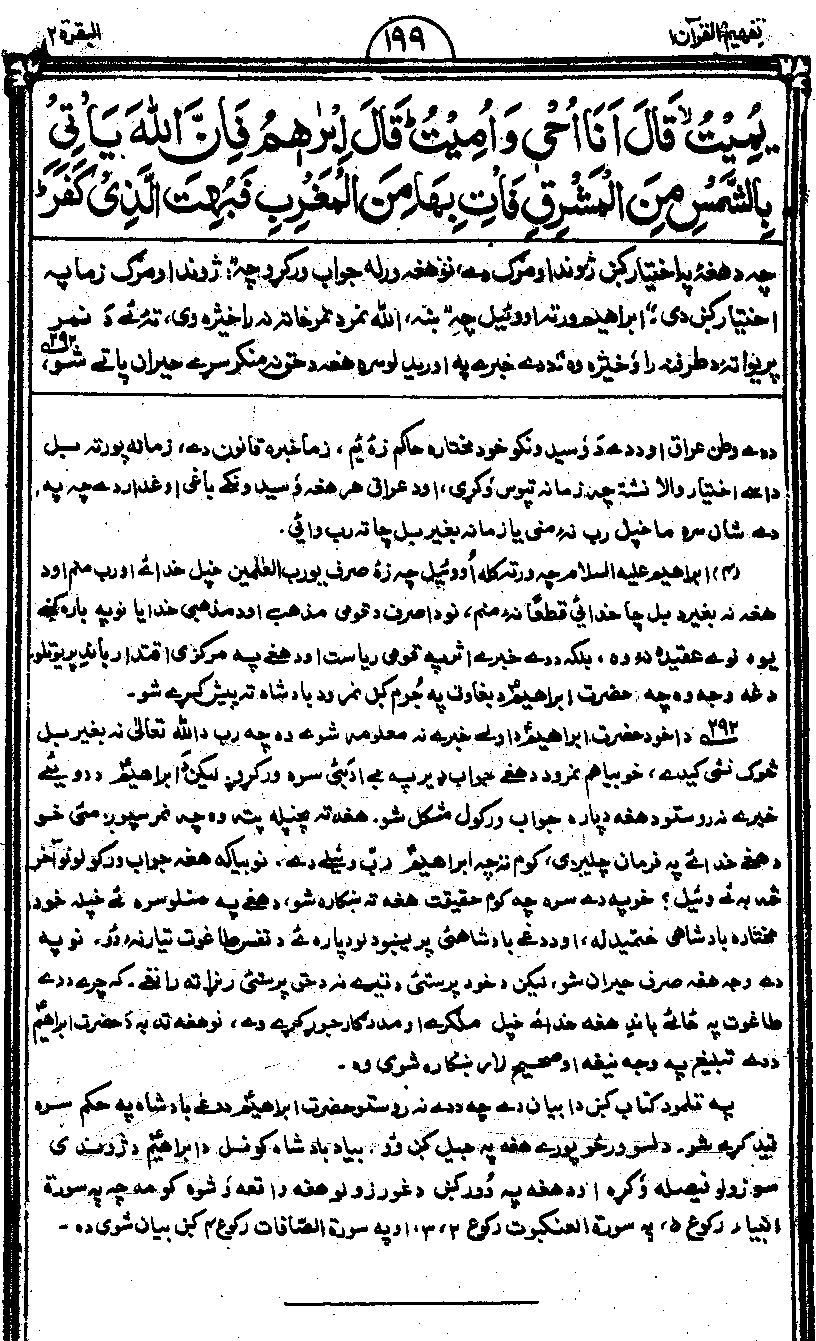 تفهیم القرآن ۱
۱۹۹
البقرة ۲
يُمِيْتُ ۙ قَالَ اَنَا اُحْیٖ وَ اُمِيْتُ ؕ قَالَ اِبْرٰهٖمُ فَاِنَّ اللّٰهَ يَاْتِیْ
بِالشَّمْسِ مِنَ الْمَشْرِقِ فَاْتِ بِهَا مِنَ الْمَغْرِبِ فَبُهِتَ الَّذِیْ كَفَرَ ؕ
چه د هغهٔ په اختیار کښ ژوند او مرګ دے، نو هغه ورله جواب ورکړو چه: ژوند او مرګ زما په
اختیار کښ دی؛ ابراهیم ورته اووئیل چه" ښه، الله نمر د نمر خاتهٔ نه را خیژه وی، تهٔ ئے دَ نمر
پریواتهٔ د طرفنه را وٗخیژه وه" د دے خبرے په اوریدلو سره هغه د حق نه منکر سړے حیران پاتے شو،
۲۹۲
د دے وطن عراق او د دے دَ وٗسیدونکو خود مختاره حاکم زهٔ یم، زما خبره قانون دے، زما نه پورته بل
داسے اختیار والا نشته چه زما نه تپوس وٗکړی، او د عراق هر هغه وٗسیدونکے باغی او غدار دے چه په
دے شان سره ما خپل رب نهٔ منی یا زما نه بغیر بل چا ته رب وائی.
(۳) ابراهیم علیه السلام چه ورته کله اُووئیل چه زهٔ صرف یو رب العٰلمین خپل خدائے او رب منم او د
هغه نه بغیر د بل چا خدائی قطعًا نهٔ منم، نو دا صرف د قومی مذهب او د مذهبی خدایانو په باره کښے
یوه نوے عقیده نه وه، بلکه د دے خبرے اثر په قومی ریاست او د هغے په مرکزی اقتدار باندے پریوتلو
دغه وجه وه چه حضرت ابراهیمؑ د بغاوت په جُرم کښ نمرود بادشاه ته پیش کړے شو۔
۲۹۲ دا خو د حضرت ابراهیمؑ د اولے خبرے نه معلومه شوے وه چه رب د الله تعالیٰ نه بغیر بل
څوک نشی کیدے، خو بیا هم نمرود د هغے جواب ډیر په بے ادَبئی سره ورکړو. لیکن دَ ابراهیمؑ د دوئیمے
خبرے نه روستو د هغه دپاره جواب ورکول مشکل شو. هغه ته پخپله پته وه چه نمر سپوږمئی خو
د هغے خدائے په فرمان چلیږی، کوم نه چه ابراهیمؑ ربّ وئیلے دے. نو بیا که هغه جواب ورکولو نو آخر
څه به ئے وئیل؟ خو په دے سره چه کوم حقیقت هغه ته ښکاره شو، د هغے په منلو سره ئے خپله خود
مختاره بادشاهی ختمیدله، او د دغے بادشاهئی پریښودلو دپاره ئے د نفس طاغوت تیار نهٔ وو. نو په
دے وجه هغه صرف حیران شو، لیکن د خود پرستئی د تیرے نه د حق پرستئی رنړا ته رانغے. که چرے د دے
طاغوت په ځائے باندے هغه خدائے خپل ملګرے او مددګار جوړ کړے وے، نو هغه ته به دَ حضرت ابراهیمؑ
د دے تبلیغ په وجه نیغه او صحیح لار ښکاره شوی وه.
په تلمود کتاب کښ دا بیان دے چه د دے نه روستو حضرت ابراهیمؑ د دغے بادشاه په حکم سره
قید کړے شو. د لسو ورځو پورے هغه په جیل کښ وو. بیا د بادشاه کونسل د ابراهیمؑ د ژوندی
سوزولو فیصله وٗکړه او د هغه په اُور کښ د غورزولو هغه واقعه وٗشوه کومه چه په سورة
انبیاء رکوع ۵، په سورة العنکبوت رکوع ۲، ۳، او په سورة الصّافات رکوع ۳ کښ بیان شوی ده.